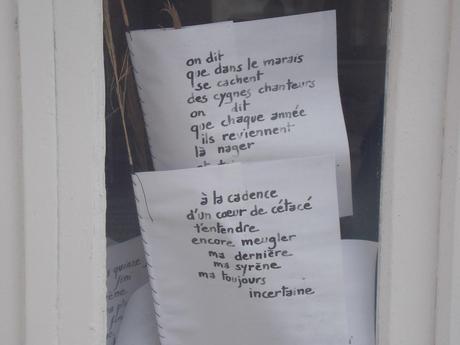 on dit
que dans le marais
se cachent
des cygnes chanteurs
on dit
que chaque année
ils reviennent
là nager
à la cadence
d'un cœur de cétacé
t'entendre
encore meugler
ma dernière
ma syrène
ma toujours
incertaine
quinze